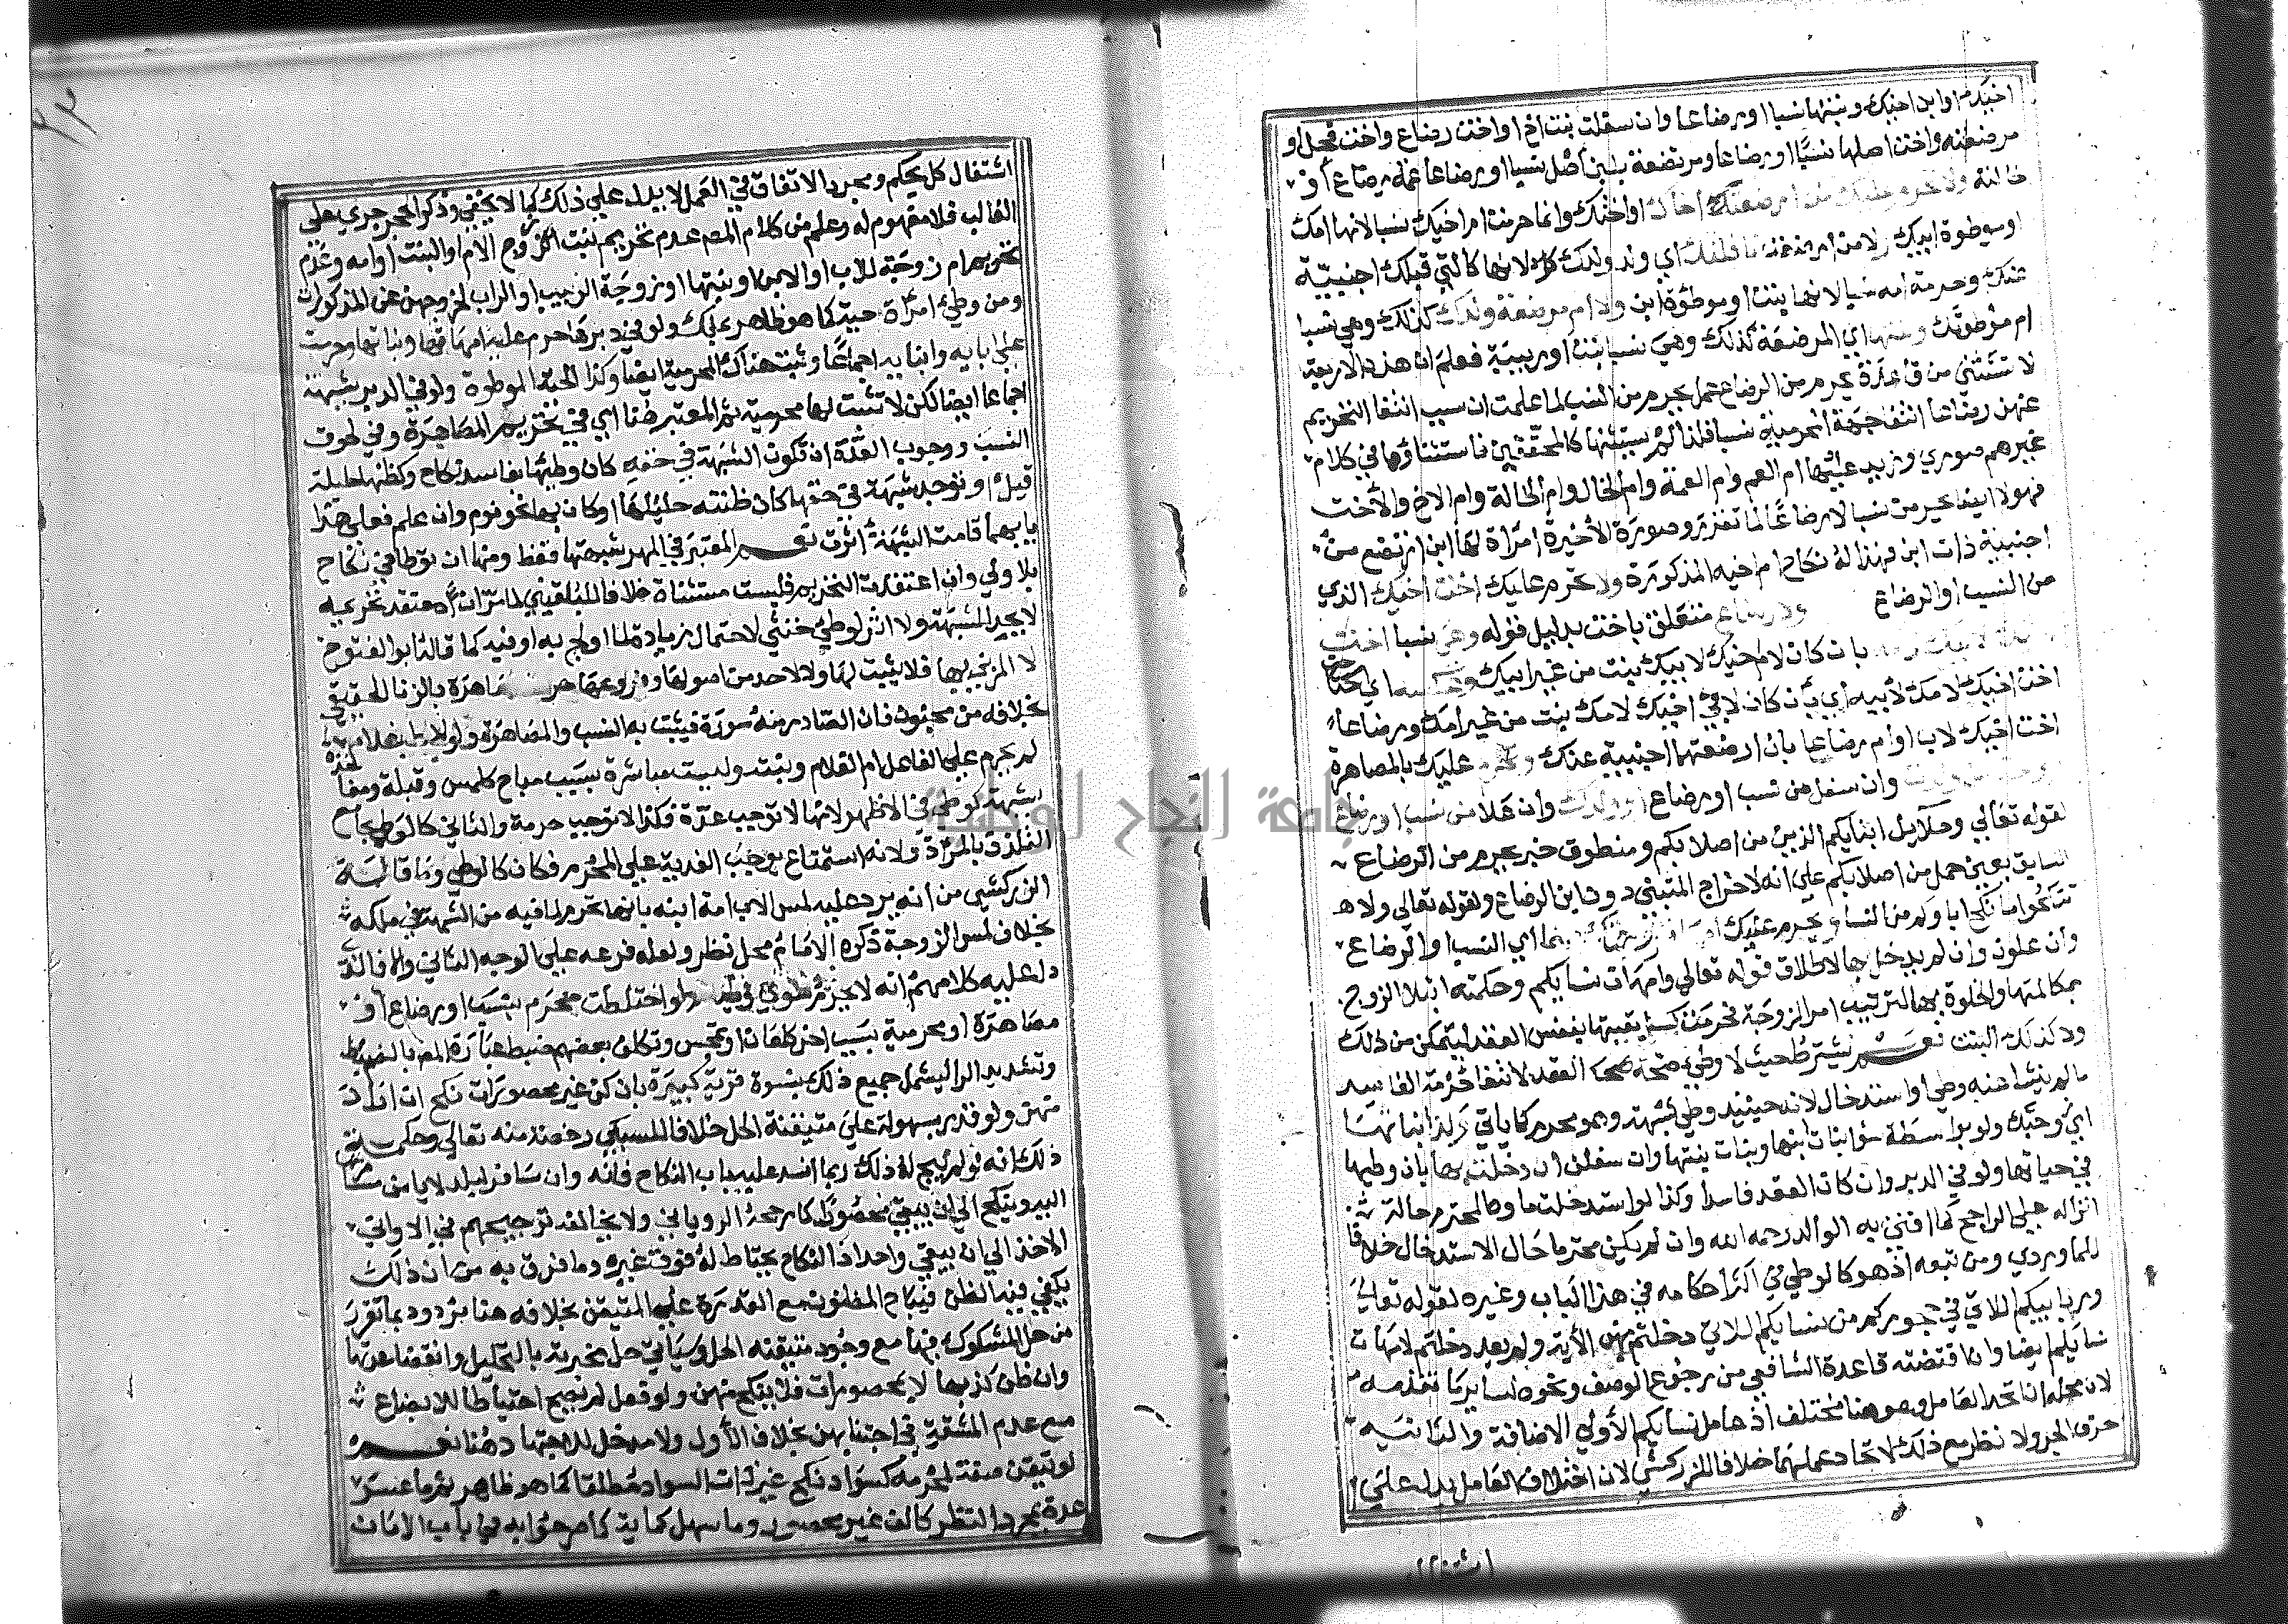 اخيك او ابن اختك وبنتها نسبا او رضاعا وان سفلت بنت اخ او اخت رضاع واخت فحل او
مرضعته واخت اصلها نسبا او رضاعا ومرتضعة بلبن اصل نسبا او رضاعا عمة رضاع او
خالته ولا تحرم عليك من ام مرضعتك اخاك او اختك وانما حرمت ام اخيك نسبا لانها امك
او موطوة ابيك ولا من ام مرضعة نافلتك اي ولد ولدك لانها كالتي قبلك اجنبية
عنك وحرمة امه نسبا لانها بنت او موطوة ابن ولا ام مرضعة ولدك كذلك وهي نسبا
ام موطوتك وبنتها اي المرضعة كذلك وهي نسبا بنت او ربيبة فعلم ان هذه الاربعة
لا تستثني من قاعدة يحرم من الرضاع ما يحرم من النسب لما علمت ان سبب انتفا التحريم
عنهن رضاعا انتفا جهة المحرمية نسبا فلذا لم يستثنها كالمحققين فاستثناوها في كلام
غيرهم صوري وزيد عليها ام العم وام العمة وام الخال وام الخالة وام الاخ والاخت
فهولا ايضا يحرمن نسبا لا رضاعا لما تقرر وصورة الاخيرة امراة لها ابن ارتضع من
اجنبية ذات ابن فهذا له نكاح ام اخيه المذكورة ولا تحرم عليك اخت اخيك الذي
من النسب او الرضاع ولا رضاع متعلق باخت بدليل قوله وهي نسبا اخت
بان كان لام اخيك لابيك بنت من غير ابيك اي
اخت اخيك لامك لابيه اي بان كان لابي اخيك لامك بنت من غير امك ورضاعا
اخت اخيك لاب او ام رضاعا بان ارضعتهما اجنبية عنك وتحرم عليك بالمصاهرة
وان سفل من نسب او رضاع او ولدك وان علا من نسب او رضاع
لقوله تعالي وحلايل ابنايكم الذين من اصلابكم ومنطوق خبر يحرم من الرضاع
السابق يعين حمل من اصلابكم علي انه لاخراج المتبني دون ابن الرضاع ولقوله تعالي ولا
تنكحوا ما نكح اباوكم من النسا ويحرم عليك اي النسب او الرضاع
وان علون وان لم يدخل بها لاطلاق قوله تعالي وامهات نسايكم وحكمته ابتلا الزوج
بمكالمتها والخلوة بها لترتيب امر الزوجة فحرمت بنفس العقد ليتمكن من ذلك
ولا كذلك البنت نعم يشترط حيث لا وطي صحة العقد لانتفا حرمة الفاسد
ما لم ينشا عنه وطي او استدخال لانه حينيذ وطي شبهة وهو محرم كما ياتي
اي زوجتك ولو بواسطة سوا بنات ابنها وبنات بنتها وان سفلن ان دخلت بها بان وطيها
في حياتها ولو في الدبر وان كان العقد فاسدا وكذا لو استدخلت ماوه المحترم حالة
انزاله علي الراجح كما افتي به الوالد رحمه الله وان لم يكن محترما حال الاستدخال خلافا
للماوردي ومن تبعه اذ هو كالوطي في اكثر احكامه في هذا الباب وغيره لقوله تعالي
وربايبكم اللاتي في حجوركم من نسايكم اللاتي دخلتم بهن الاية ولم يعد دخلتم لامهات
نسايكم ايضا وان اقتضته قاعدة الشافعي من رجوع الوصف ونحوه لساير ما تقدمه
لان محله ان اتحد العامل وهو هنا مختلف اذ عامل نسايكم الاولي الاضافة والثانية
حرف الجر ولا نظر مع ذلك لاتحاد عملهما خلافا للزركشي لان اختلاف العامل يدل علي
استقلال
استقلال كل بحكم ومجرد الاتفاق في العمل لا يدل علي ذلك كما لا يخفي وذكر الحجر جري علي
الغالب فلا مفهوم له وعلم من كلام المصم عدم تحريم بنت زوج الام او البنت او امه وعدم
تحريم ام زوجة للاب او الابن او بنتها او زوجة الربيب او الراب لخروجهن عن المذكورات
ومن وطي امراة حية كما هو ظاهر بملك ولو في دبرها حرم عليه امهاتها وبناتها وحرمت
علي ابايه وابنايه اجماعا وثبت هناك المحرمية ايضا وكذا الحية الموطوة ولو في الدبر بشبهة
اجماعا ايضا لكن لا تثبت لها محرمية ثم المعتبر هنا اي في تحريم المصاهرة وفي لحوق
النسب ووجوب العدة ان تكون الشبهة في حقه كان وطيها بفاسد نكاح وكظنها حليلة
قيل او توجد شبهة في حقها كان ظنته حليلها او كان بها نحو نوم وان علم فعلي هذا
بايهما قامت الشبهة اثرت نعم المعتبر في المهر شبهتها فقط ومنها ان توطا في نكاح
بلا ولي وان اعتقدت التحريم فليست مستثناة خلافا للبلقيني لما مر ان معتقد تحريمه
لا يحد للشبهة ولا اثر لوطي خنثي لاحتمال زيادة ما اولج به او فيه كما قاله ابو الفتوح
لا المزني بها فلا يثبت لها ولا لاحد من اصولها وفروعها حرمة مصاهرة بالزنا الحقيقي
بخلافه من مجنون فان الصادر منه صورة فيثبت به النسب والمصاهرة ولو لاط بغلام
لم يحرم علي الفاعل ام الغلام وبنته وليست مباشرة بسبب مباح كلمس وقبلة ومفاخذة
بشبهة كوطي في الاظهر لانها لا توجب عدة فكذا لا توجب حرمة والثاني كالوطي بجامع
التلذذ بالمراة ولانه استمتاع يوجب الفدية علي المحرم فكان كالوطي وما قاله
الزركشي من انه يرد عليه لمس الاب امة ابنه بانها تحرم لما فيه من الشبهة في ملكه
بخلاف لمس الزوجة ذكره الامام محل نظر ولعله فرعه علي الوجه الثاني والا فالذي
دل عليه كلامهم انه لا يحرم ولو اختلطت محرم بنسب او رضاع او
مصاهرة او محرمية بسبب اخر كلعان او تمجس وتكلف بعضهم ضبط عبارة المص بالضم
وتشديد الرا ليشمل جميع ذلك بنسوة قرية كبيرة بان كن غير محصورات نكح ان اراد
منهن ولو قدر بسهولة علي متيقنة الحل خلافا للسبكي رخصة منه تعالي وحكمة
ذلك انه لو لم يبح له ذلك ربما انسد عليه باب النكاح فانه وان سافر لبلد لا يامن مسافرتها
اليه وينكح الي ان يبقي محصور كما رجحه الروياني ولا يخالفه ترجيحهم في الاواني
الاخذ الي ان يبقي واحد اذ النكاح يحتاط له فوق غيره وما فرق به من ان ذلك
يكفي فيه الظن فيباح المظنون مع القدرة علي المتيقن بخلافه هنا مردود بما تقرر
من حل المشكوك فيها مع وجود متيقنة الحل وسياتي حل مخبرته بالتحليل وانقضا عدتها
وان ظن كذبها لا بمحصورات فلا ينكح منهن ولو فعل لم يصح احتياطا للابضاع
مع عدم المشقة في اجتنابهن بخلاف الاول ولا مدخل للاجتهاد هنا نعم
لو تيقن صفة لمحرمه كسواد نكح غير ذات السواد مطلقا كما هو ظاهر ثم ما عسر
عده بمجرد النظر كالف غير محصور وما سهل كماية كما صرحوا به في باب الامان